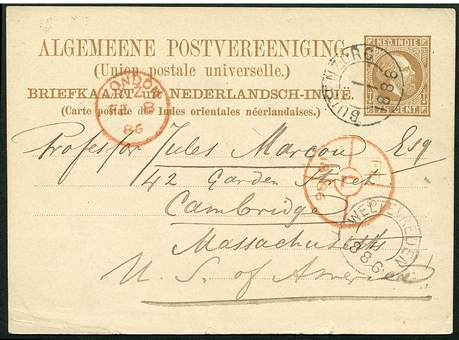 ALGEMEENE POSTVEREENIGING
(Union postale universelle.)
BRIEFKAART UIT NEDERLANDSCH-INDIË.
(Carte postale des Indes orientales néerlandaises.)
NED. INDIE
CENT.
BUITENZORG
1/1
1886
LONDON
Z
FE 8
86
Professor Jules Marcou Esq
42 Garden Street
Cambridge
Massachusetts
U. S. of America
WELTEVREDEN
1/1
1886